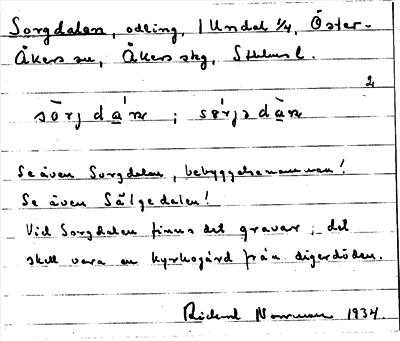 Sorgdalen, odling, 1 Undal 1/4, Öster-
Åkers sn, Åkers skg, Sthlms l.
2
sö̀rj dá̱n ; sö́rjə dà̱n
Se även Sorgdalen, bebyggelsenamnen!
Se även Sälgedalen!
Vid Sorgdalen finns det gravar; det
skall vara en kyrkogård från digerdöden.
Rickard 1934.